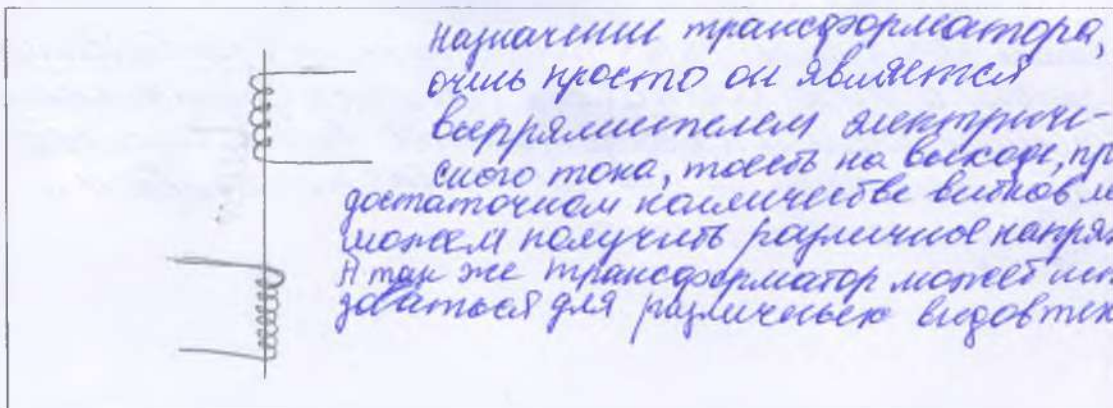 назначение трансформатора,
очень просто он является
выпрямителем электриче-
ского тока, тоесть на выходе, пр
достаточном количестве витков м
можем получить различное напря
А так же трансформатор может исп
зоваться для различных видов тех